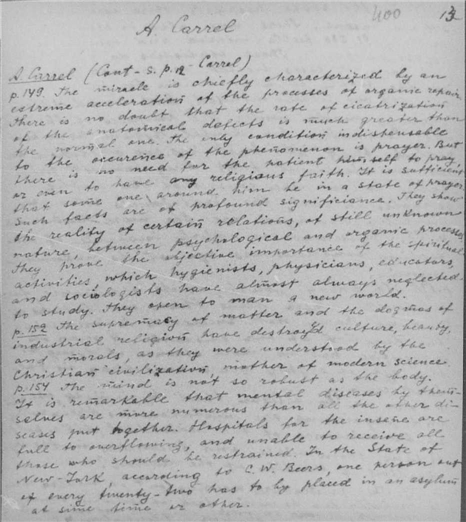 400
13
A Carrel
A. Carrel (Cont - s. p. 12 Carrel)
p. 149. The miracle is chiefly characterized by an
extreme acceleration of the processes of organic repair.
There is no doubt that the rate of cicatrization
of the anatomical defects is much greater than
the normal one. The only condition indispensable
to the occurence of the phenomenon is prayer. But
there is no need for the patient himself to pray,
or even to have any religious faith. It is sufficient
that some one around him be in a state of prayer.
Such facts are of profound significance. They show
the reality of certain relations, of still unknown
nature, between psychological and organic processes.
They prove the objective importance of the spiritual
activities, which hygienists, physicians, educators,
and sociologists have almost always neglected
to study. They open to man a new world.
p. 152 The supremacy of matter and the dogmas of
industrial religion have destroyd culture, beauty,
and morals, as they were understood by the
Christian civilization, mother of modern science.
p. 154 The mind is not so robust as the body.
It is remarkable that mental diseases by them-
selves are more numerous than all the other di-
seases put together. Hospitals for the insane are
full to overflowing, and unable to receive all
those who should be restrained. In the State of
New-York, according to C. W. Beers, one person out
of every twenty-two has to by placed in an asylum
at some time or other.